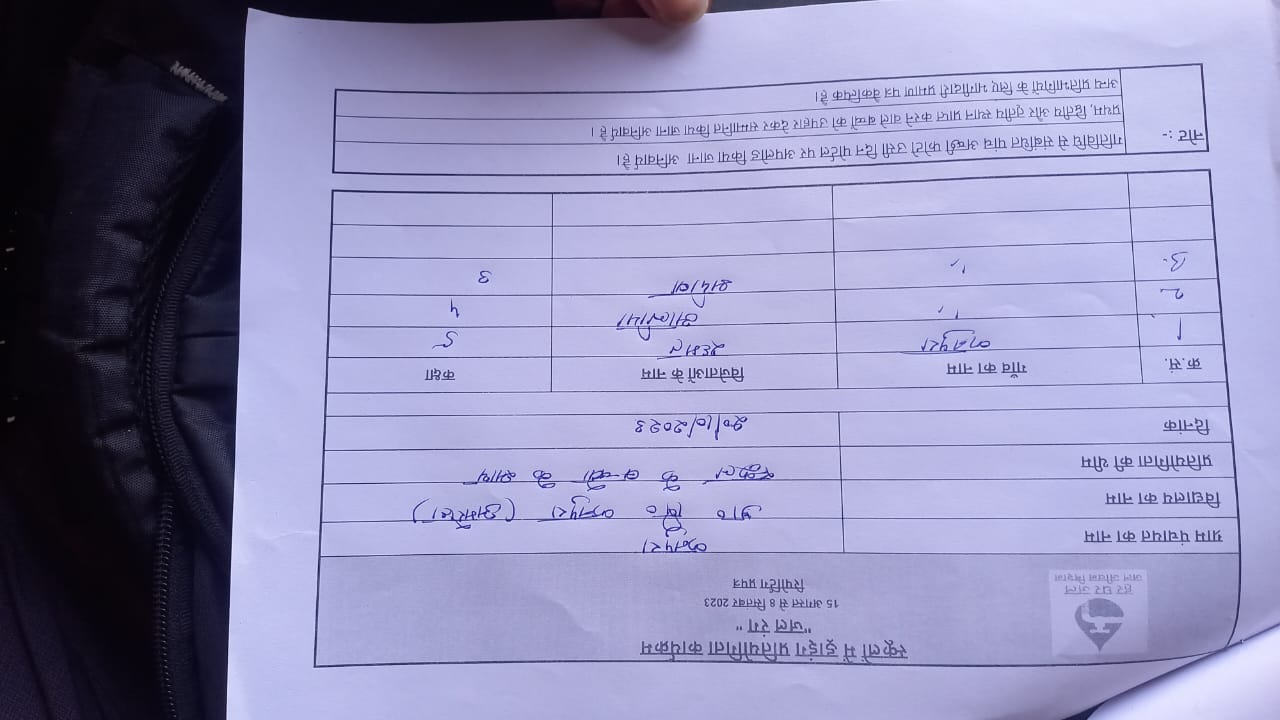 हर घर जल
जल जीवन मिशन
स्कूलों में ड्राइंग प्रतियोगिता कार्यक्रम
"जल रंग "
15 अगस्त से 8 सितंबर 2023
रिपोर्टिंग प्रपत्र
ग्राम पंचायत का नाम
विद्यालय का नाम प्रा० वि०
प्रतियोगिता की थीम स्कूल के बच्चों के साथ
दिनांक 20/10/2023
क्र.सं. गाँव का नाम विजेताओं के नाम कक्षा
1 5
2 " 4
3. " 3
नोट :- गतिविधि से संबंधित पांच अच्छी फोटो उसी दिन पोर्टल पर अपलोड किया जाना अनिवार्य है।
प्रथम, द्वितीय और तृतीय स्थान प्राप्त करने वाले बच्चों को उपहार देकर सम्मानित किया जाना अनिवार्य है ।
अन्य प्रतिभागियों के लिए भागीदारी प्रमाण पत्र वैकल्पिक है।